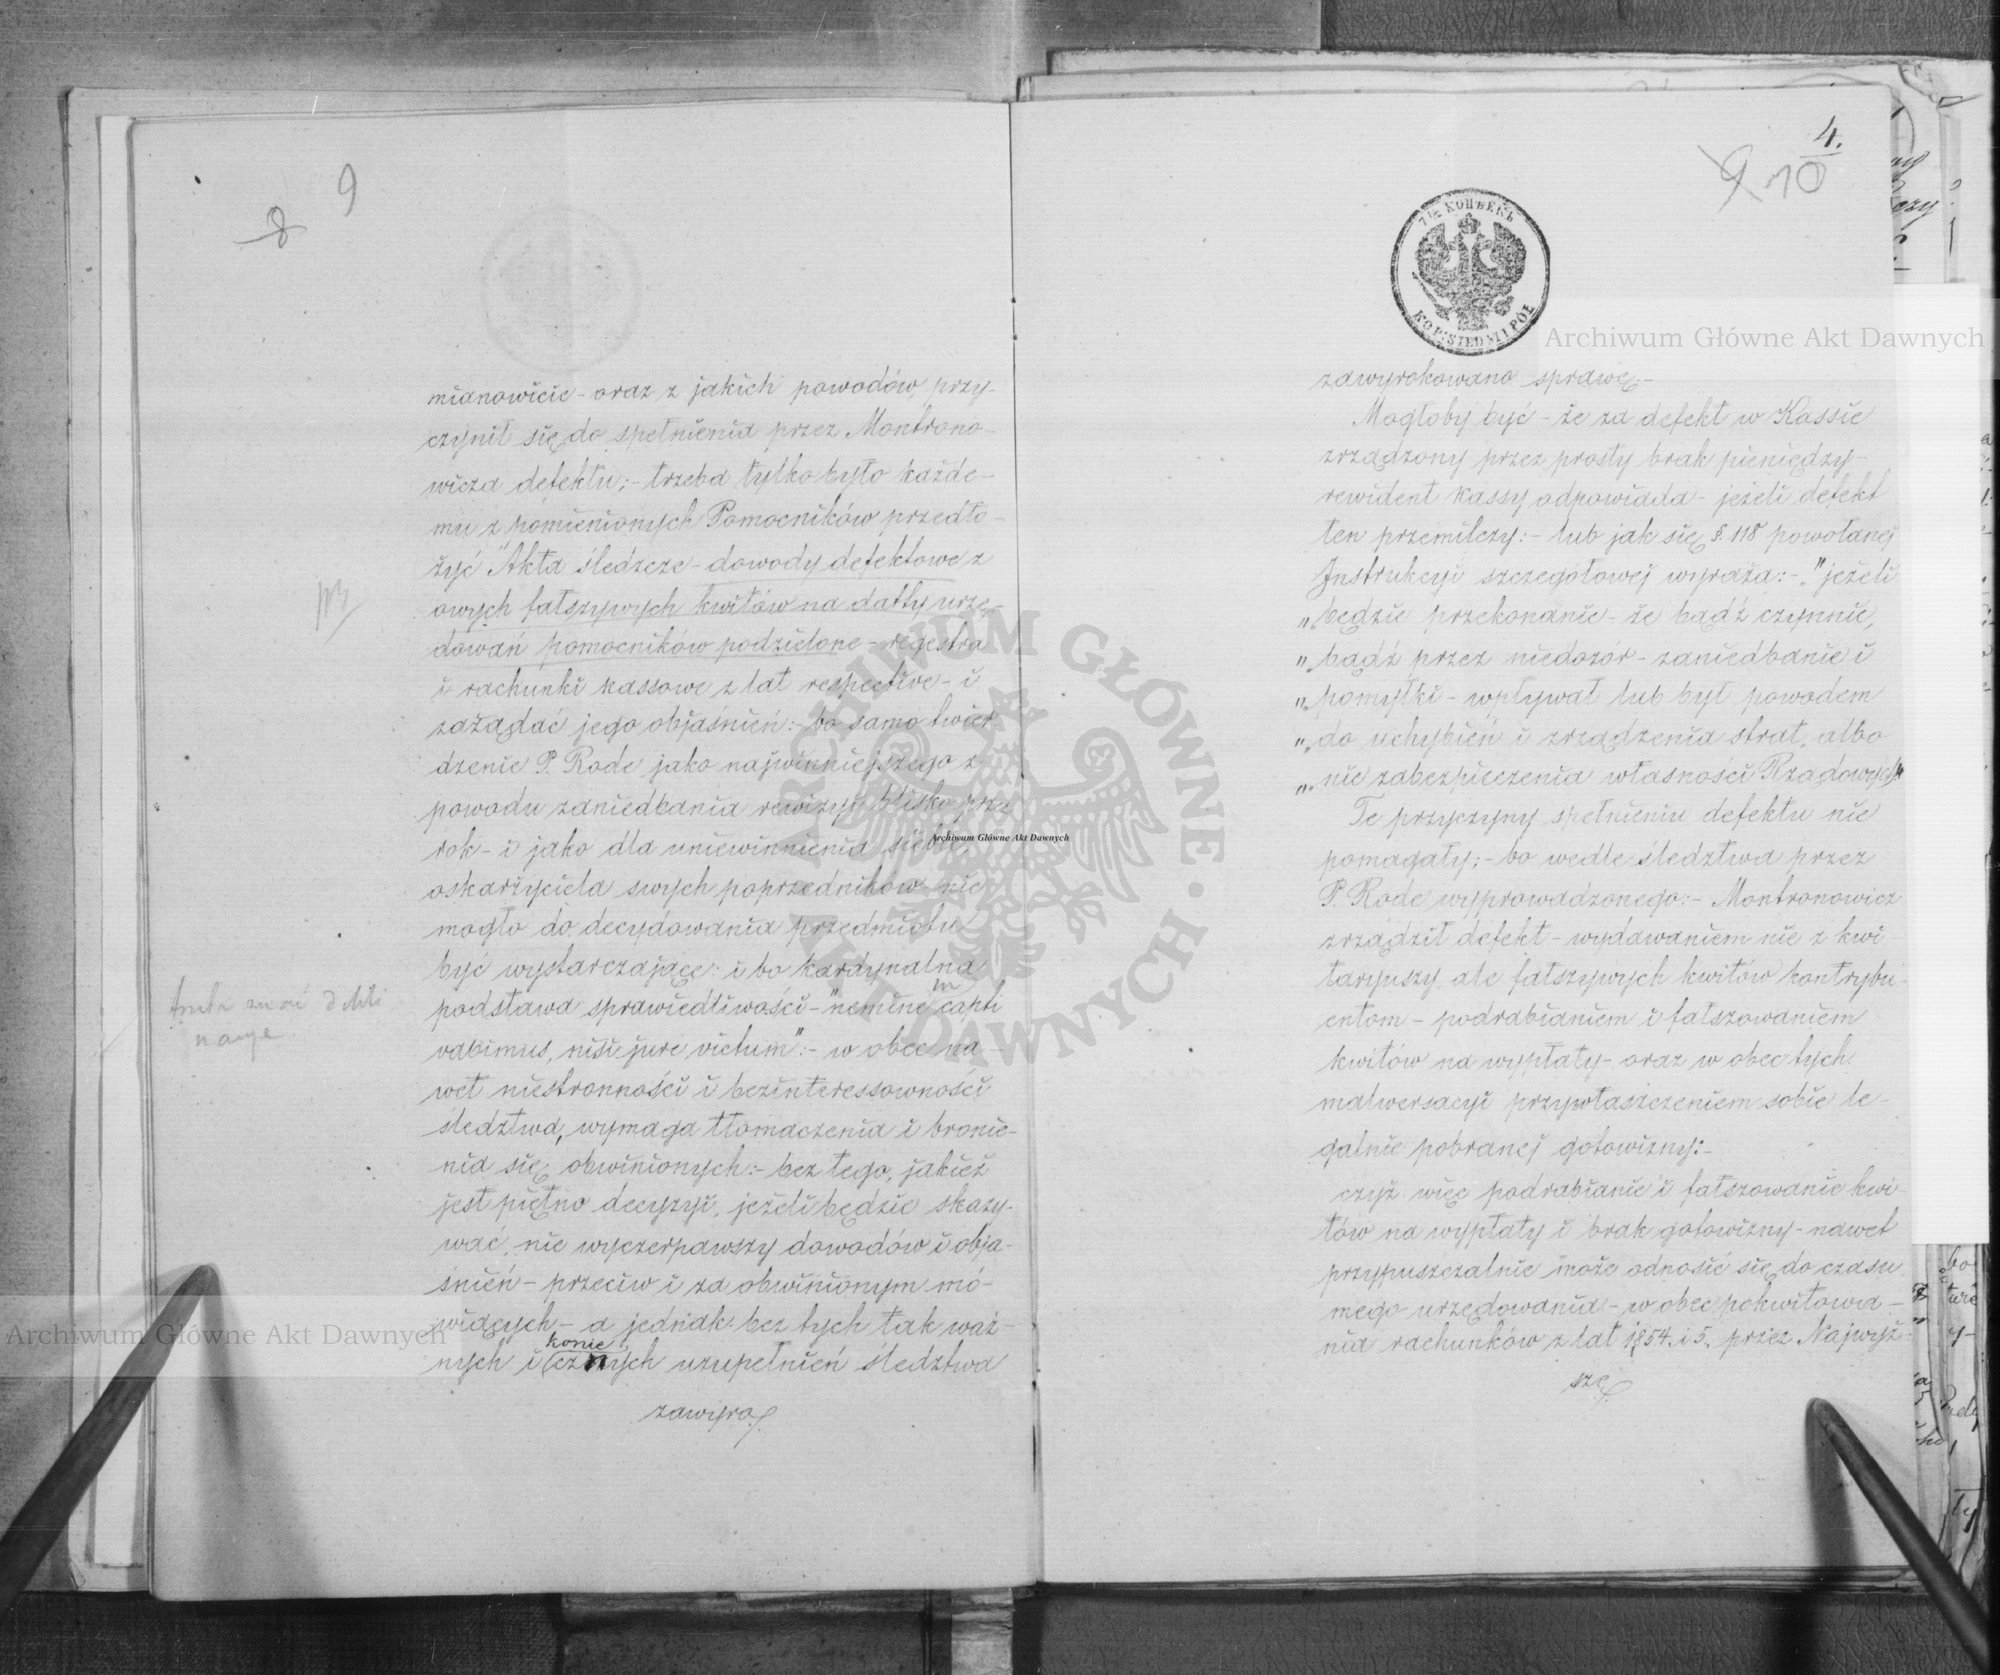 9
8
mianowicie - oraz z jakich powodów, przy-
czynił się do spełnienia przez Montrono-
wicza defektu; - trzeba tylko było każde-
mu z pomienionych Pomocników przedło-
żyć "Akta śledcze - dowody defektowe z
owych fałszywych kwitów na datty urzę-
dowań pomocników podzielone - regestra
i rachunki kassowe z lat respective - i
zażądać jego objaśnień: - bo samo twier
dzenie P. Rode jako najwinniejszego z
powodu zaniedbania rewizyi blisko przez
rok - i jako dla uniewinnienia siebie,
oskarżyciela swych poprzedników - nie
mogło do decydowania przedmiotu
być wystarczające: i bo kardynalna
podstawa sprawiedliwości - "neminem capti
vabimus, nisi jure victum": - w obec na-
wet niestronności i bezinteressowności
śledztwa, wymaga tłomaczenia i bronie-
nia się obwinionych: - bez tego, jakież
jest piętno decyzyi, jeżeli będzie skazy-
wać, nie wyczerpawszy dowodów i obja-
śnień - przeciw i za obwinionym mó-
wiących - a jednak bez tych tak waż-
nych i koniecznych uzupełnień śledztwa
zawyro
4.
9 10
7½ КОПѢЕКЪ
KOP: SIEDM I PÓŁ
zawyrokowano sprawę. -
Mogłoby być - że za defekt w Kassie
zrządzony przez prosty brak pieniędzy -
rewident kassy odpowiada - jeżeli defekt
ten przemilczy: - lub jak się §. 118 powołanej
Instrukcyi szczegółowej wyraża: - "jeżeli
" będzie przekonanie - że bądź czynnie,
" bądź przez niedozór - zaniedbanie i
" pomyłki - wpływał lub był powodem
" do uchybień i zrządzenia strat, albo
" nie zabezpieczenia własności Rządowych"
Te przyczyny spełnieniu defektu nie
pomagały; - bo wedle śledztwa przez
P. Rode wyprowadzonego: - Montronowicz
zrządził defekt - wydawaniem nie z kwi
taryuszy, ale fałszywych kwitów kontrybu-
entom - podrabianiem i fałszowaniem
kwitów na wypłaty - oraz w obec tych
malwersacyi przywłaszczeniem sobie le-
galnie pobranej gotowizny: -
czyż więc podrabianie i fałszowanie kwi-
tów na wypłaty i brak gotowizny - nawet
przypuszczalnie może odnosić się do czasu
mego urzędowania - w obec pokwitowa-
nia rachunków z lat 1854. i 5. przez Najwyż-
szę
Archiwum Główne Akt Dawnych
Archiwum Główne Akt Dawnych
Archiwum Główne Akt Dawnych
ARCHIWUM GŁÓWNE AKT DAWNYCH